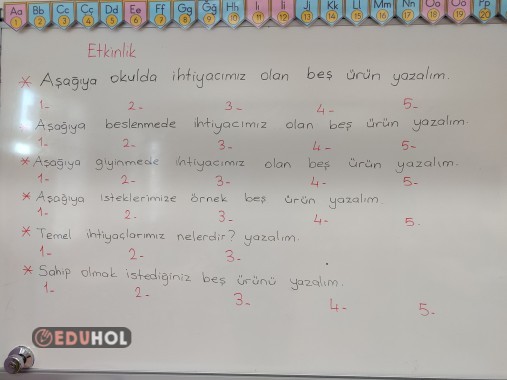 Aa Bb Cc Çç Dd Ee Ff Gg Ğğ Hh Iı İi Jj Kk Ll Mm Nn Oo Öö Pp
1 2 3 4 5 6 7 8 9 10 11 12 13 14 15 16 17 18 19 20
Etkinlik
* Aşağıya okulda ihtiyacımız olan beş ürün yazalım.
1- 2- 3- 4- 5-
* Aşağıya beslenmede ihtiyacımız olan beş ürün yazalım.
1- 2- 3- 4- 5-
* Aşağıya giyinmede ihtiyacımız olan beş ürün yazalım.
1- 2- 3- 4- 5-
* Aşağıya isteklerimize örnek beş ürün yazalım.
1- 2- 3- 4- 5-
* Temel ihtiyaçlarımız nelerdir? yazalım.
1- 2- 3-
* Sahip olmak istediğiniz beş ürünü yazalım.
1- 2- 3- 4- 5-
EDUHOL